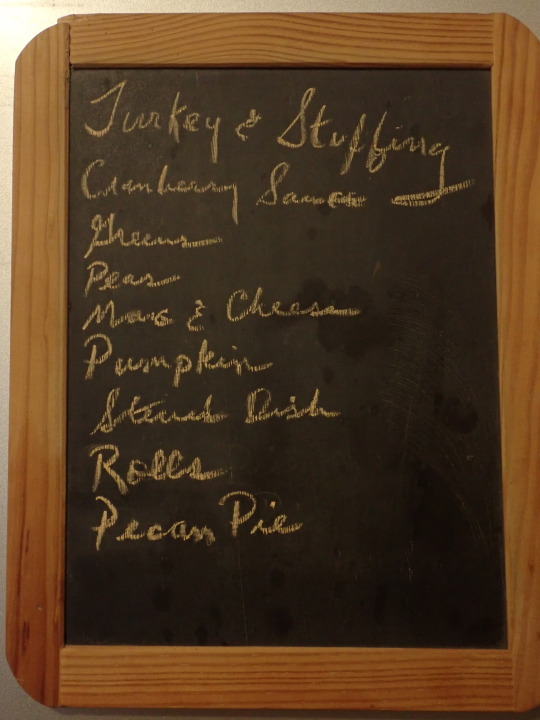 Turkey & Stuffing
Cranberry Sauce
Greens
Peas
Mac & Cheese
Pumpkin
Dish
Rolls
Pecan Pie